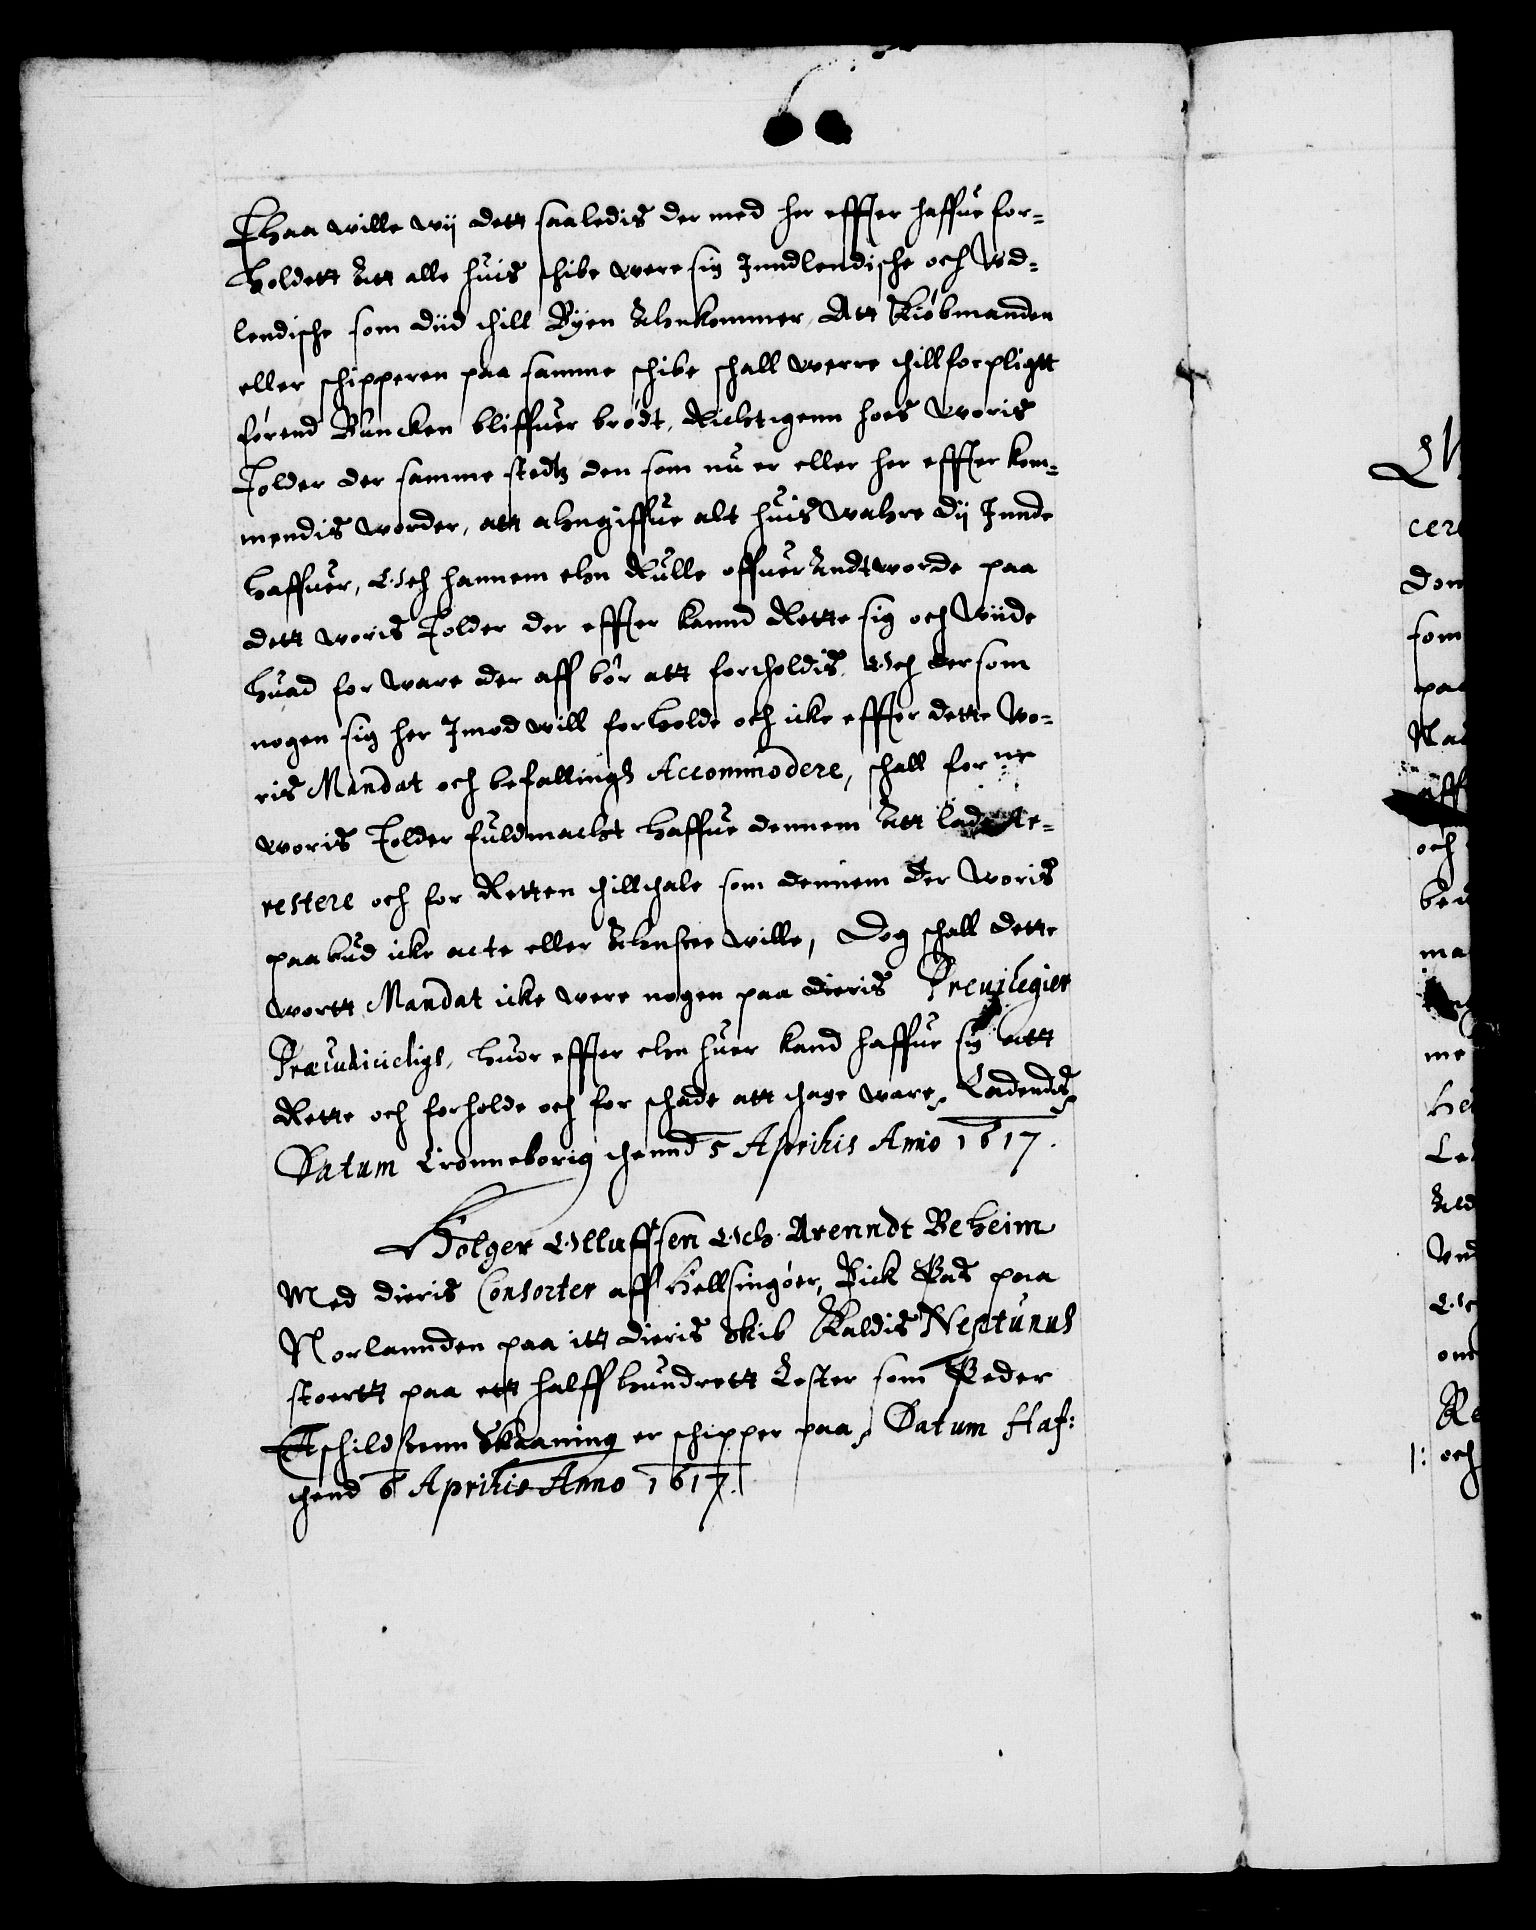 Thaa wille wij dett saaledis der med her effter haffue for-
holdett Att alle huis schibe were sig Inndlendische och Vd-
lendische som diid thill Byen Ahnkommer, Att Kiøbmanden
eller schipperen paa samme schibe schall werre thillforpligtt
førend Buncken bliffuer brødt, Richtigenn hoes Woris
Tolder der samme stedtz den som nu er eller her effter kom-
mendis worder, att ahngiffue alt huis Wahre dij Innde
haffuer, Och hannem ehn Rulle offuer Andtworde paa
dett woris Tolder der effter kannd Rette sig och Wiide
huad for ware der aff bør att fortholdis. Och dersom
nogen sig her Imod will forholde och icke effter dette Wo-
ris Mandat och befallingh Accommodere, schall for ne
woris Tolder fuldmacht haffue dennem Att lade Ar-
restere och for Retten thillthale som dennem der Woris
paabud icke acte eller Ahnsee wille, Dog schall dette
wortt Mandat icke were nogen paa dieris Preuilegier
Præiudicieligt, huor effter ehn huer kand haffue sig att
Rette och forholde och for schade att thage ware, Ladendis
Datum Cronneborig thennd 5 Aprilis Anno 1617.
Holger Olluffsen Och Arenndt Beheim
Med dieris Consorter aff Hellsingøer, Fick Pas paa
Norlannden paa itt dieris Skib Kaldis Neptunus
stoertt paa ett halff hundrett Lester som Peder
Aschildsenn Skaaning er schipper paa, Datum Haf:
thend 6 Aprilis Anno 1617.